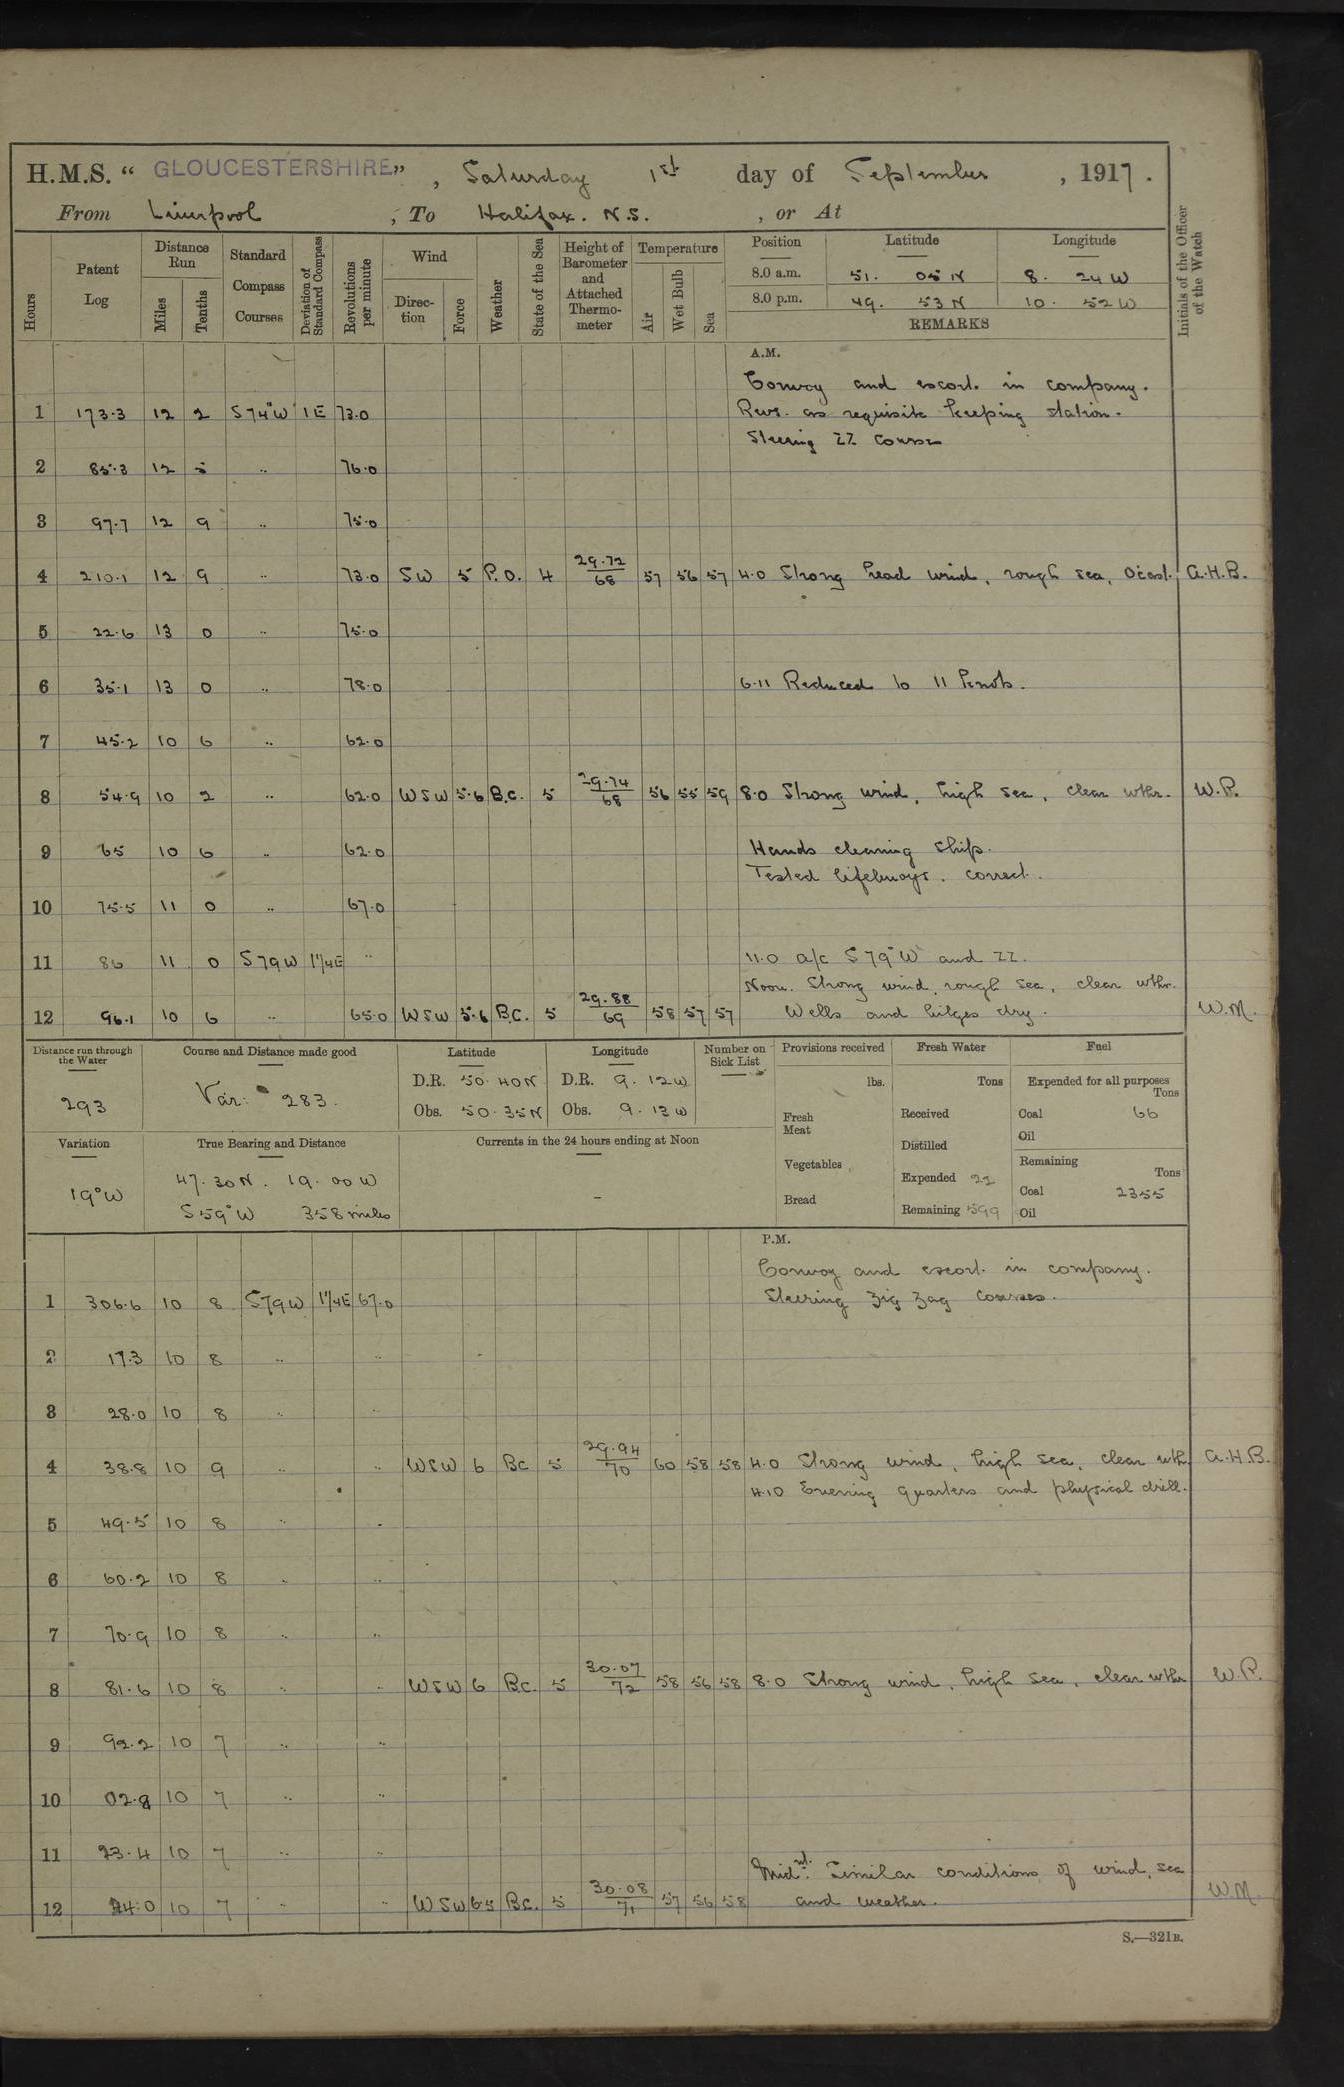 H.M.S. “ GLOUCESTERSHIRE ” , Saturday 1st day of September , 1917 .
From Liverpool , To Halifax. N.S. , or At
Hours Patent Log Distance Run Miles Tenths Standard Compass Courses Deviation of Standard Compass Revolutions per minute Wind Direction Force Weather State of the Sea Height of Barometer and Attached Thermometer Temperature Air Wet Bulb Sea Position Latitude Longitude Initials of the Officer of the Watch
8.0 a.m. 51. 05 N 8. 24 W
8.0 p.m. 49. 53 N 10. 52 W
REMARKS
A.M.
Convoy and escort. in company.
1 173.3 12 2 S 74°W 1 E 73.0 Revs. as requisite keeping station.
Steering ZZ Courses
2 85.3 12 5 .. 76.0
3 97.7 12 9 .. 75.0
4 210.1 12 9 .. 73.0 SW 5 P.O. 4 29.72/68 57 56 57 4.0 Strong head wind, rough sea, O'cast. A.H.B.
5 22.6 13 0 .. 75.0
6 35.1 13 0 .. 78.0 6.11 Reduced to 11 knots.
7 45.2 10 6 .. 62.0
8 54.9 10 2 .. 62.0 WSW 5.6 B.C. 5 29.74/68 56 55 59 8.0 Strong wind, high sea, clear wthr. W.P.
9 65 10 6 .. 62.0 Hands cleaning ship.
Tested lifebuoys. correct.
10 75.5 11 0 .. 67.0
11 86 11 0 S 79 W 1¼E .. 11.0 a/c S 79°W and ZZ.
Noon. Strong wind, rough sea, clear wthr.
12 96.1 10 6 .. 65.0 WSW 5.6 B.C. 5 29.88/69 58 57 57 Wells and bilges dry. W.M.
Distance run through the Water Course and Distance made good Latitude Longitude Number on Sick List Provisions received Fresh Water Fuel
293 Var: 283.
D.R. 50.40N D.R. 9.12W
Obs. 50.35N Obs. 9.13W
lbs. Tons Expended for all purposes Tons
Fresh Meat Received Coal 66
Distilled Oil
Variation True Bearing and Distance Currents in the 24 hours ending at Noon
19°W 47.30N. 19.00W –
S 59°W 358 miles
Vegetables Expended 22 Remaining Tons
Coal 2355
Bread Remaining 599 Oil
P.M.
Convoy and escort. in company.
1 306.6 10 8 S79W 1¼E 67.0 Steering zig zag courses.
2 17.3 10 8 .. ..
3 28.0 10 8 .. ..
4 38.8 10 9 .. .. WSW 6 Bc 5 29.94/70 60 58 58 4.0 Strong wind, high sea, clear wth. A.H.B.
4.10 Evening quarters and physical drill.
5 49.5 10 8 .. ..
6 60.2 10 8 .. ..
7 70.9 10 8 .. ..
8 81.6 10 8 .. .. WSW 6 B.C. 5 30.07/72 58 56 58 8.0 Strong wind, high sea, clear wthr W.P.
9 92.2 10 7 .. ..
10 02.8 10 7 .. ..
11 13.4 10 7 .. ..
Midnt. Similar conditions of wind, sea
12 24.0 10 7 .. .. WSW 6.5 B.C. 5 30.08/71 57 56 58 and weather. W.M.
S.—321B.